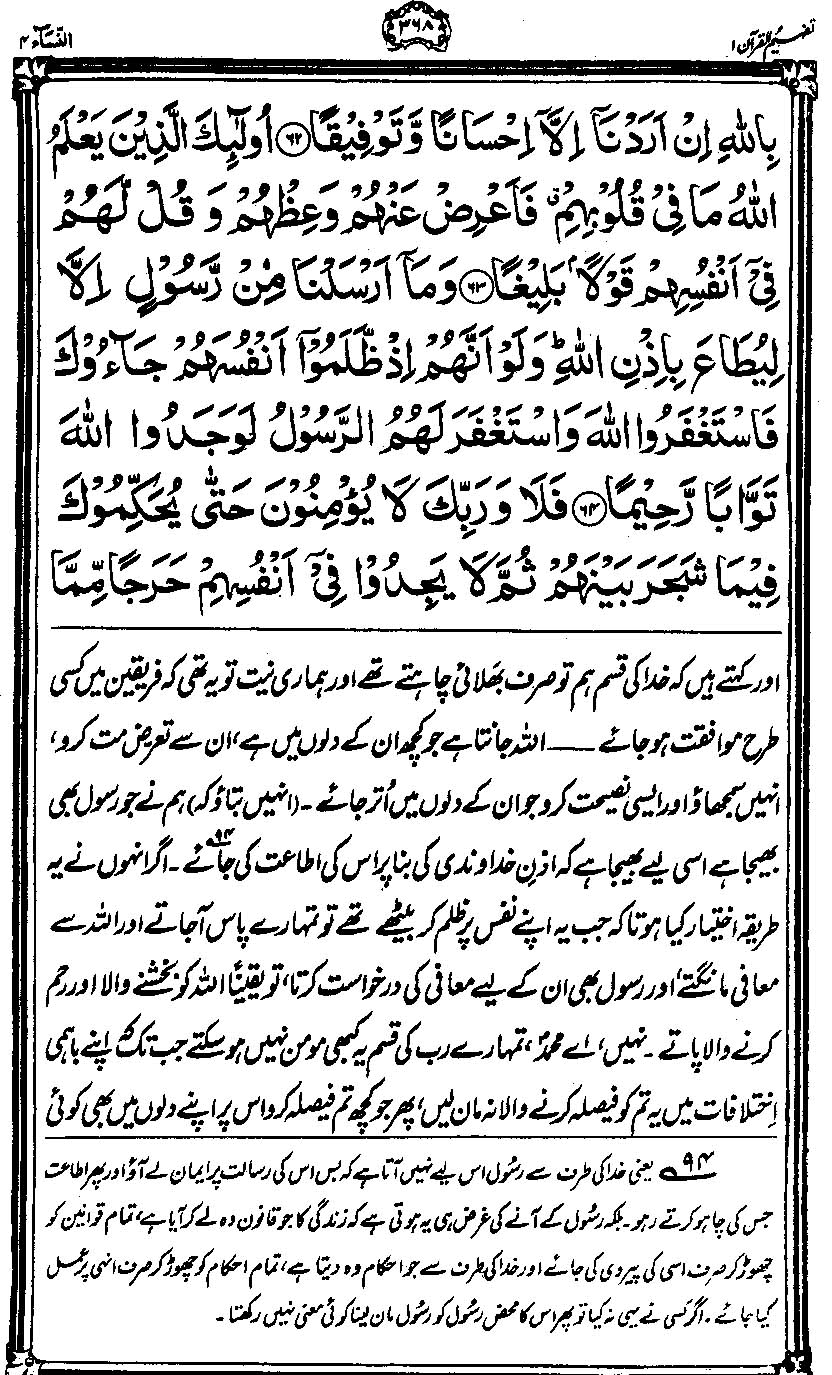 تفہیم القرآن ۱
۳۶۸
النسآء ۴
بِاللّٰهِ اِنْ اَرَدْنَاۤ اِلَّاۤ اِحْسَانًا وَّ تَوْفِیْقًا ﴿۶۲﴾ اُولٰٓىِٕكَ الَّذِیْنَ یَعْلَمُ
اللّٰهُ مَا فِیْ قُلُوْبِهِمْ ۗ فَاَعْرِضْ عَنْهُمْ وَ عِظْهُمْ وَ قُلْ لَّهُمْ
فِیْۤ اَنْفُسِهِمْ قَوْلًۢا بَلِیْغًا ﴿۶۳﴾ وَ مَاۤ اَرْسَلْنَا مِنْ رَّسُوْلٍ اِلَّا
لِیُطَاعَ بِاِذْنِ اللّٰهِ ؕ وَ لَوْ اَنَّهُمْ اِذْ ظَّلَمُوْۤا اَنْفُسَهُمْ جَآءُوْكَ
فَاسْتَغْفَرُوا اللّٰهَ وَ اسْتَغْفَرَ لَهُمُ الرَّسُوْلُ لَوَجَدُوا اللّٰهَ
تَوَّابًا رَّحِیْمًا ﴿۶۴﴾ فَلَا وَ رَبِّكَ لَا یُؤْمِنُوْنَ حَتّٰی یُحَكِّمُوْكَ
فِیْمَا شَجَرَ بَیْنَهُمْ ثُمَّ لَا یَجِدُوْا فِیْۤ اَنْفُسِهِمْ حَرَجًا مِّمَّا
اور کہتے ہیں کہ خدا کی قسم ہم تو صرف بھلائی چاہتے تھے اور ہماری نیت تو یہ تھی کہ فریقین میں کسی
طرح موافقت ہو جائے ــــــ اللہ جانتا ہے جو کچھ ان کے دلوں میں ہے، ان سے تعرض مت کرو،
انہیں سمجھاؤ اور ایسی نصیحت کرو جو ان کے دلوں میں اُتر جائے۔ (انہیں بتاؤ کہ) ہم نے جو رسول بھی
بھیجا ہے اسی لیے بھیجا ہے کہ اذنِ خداوندی کی بنا پر اس کی اطاعت کی جائے۹۴۔ اگر انہوں نے یہ
طریقہ اختیار کیا ہوتا کہ جب یہ اپنے نفس پر ظلم کر بیٹھے تھے تو تمہارے پاس آ جاتے اور اللہ سے
معافی مانگتے، اور رسول بھی ان کے لیے معافی کی درخواست کرتا، تو یقیناً اللہ کو بخشنے والا اور رحم
کرنے والا پاتے۔ نہیں، اے محمدؐ، تمہارے رب کی قسم یہ کبھی مومن نہیں ہو سکتے جب تک کہ اپنے باہمی
اختلافات میں یہ تم کو فیصلہ کرنے والا نہ مان لیں، پھر جو کچھ تم فیصلہ کرو اس پر اپنے دلوں میں بھی کوئی
۹۴ یعنی خدا کی طرف سے رسُول اس لیے نہیں آتا ہے کہ بس اس کی رسالت پر ایمان لے آؤ اور پھر اطاعت
جس کی چاہو کرتے رہو۔ بلکہ رسُول کے آنے کی غرض ہی یہ ہوتی ہے کہ زندگی کا جو قانون وہ لے کر آیا ہے، تمام قوانین کو
چھوڑ کر صرف اسی کی پیروی کی جائے اور خدا کی طرف سے جو احکام وہ دیتا ہے، تمام احکام کو چھوڑ کر صرف انہی پر عمل
کیا جائے۔ اگر کسی نے یہی نہ کیا تو پھر اس کا محض رسُول کو رسُول مان لینا کوئی معنی نہیں رکھتا۔